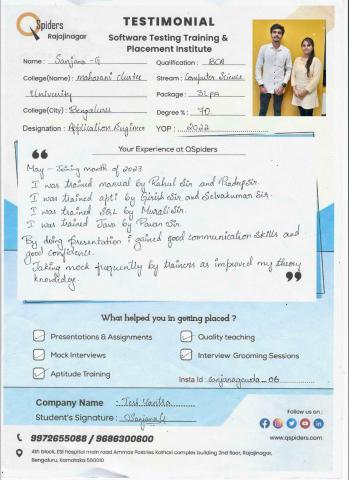 QSpiders
Rajajinagar
TESTIMONIAL
Software Testing Training &
Placement Institute
Name : Sanjana - G
Qualification : BCA
College(Name) : maharani cluster
Stream : Computer Science
University
Package : 3LPA
College(City) : Bengaluru
Degree % : 70
Designation : Application Engineer
YOP : 2022
Your Experience at QSpiders
May - Joining month of 2023
I was trained manual by Rahul Sir and Pradeep Sir.
I was trained apti by Girish Sir and Selvakumar Sir.
I was trained SQL by Murali Sir.
I was trained Java by Pavan Sir.
By doing presentation i gained good communication skills and
good confidence.
Taking mock frequently by trainers as improved my theory
knowledge.
What helped you in getting placed ?
Presentations & Assignments
Quality teaching
Mock Interviews
Interview Grooming Sessions
Aptitude Training
Insta Id : sanjanagowda_06
Company Name : Test Yantra
Student's Signature : Sanjana G
Follow us on :
9972655088 / 9686300600
www.qspiders.com
4th block, ESI hospital main road Ammas Pastries Kathai complex building 2nd floor, Rajajinagar,
Bengaluru, Karnataka 560010